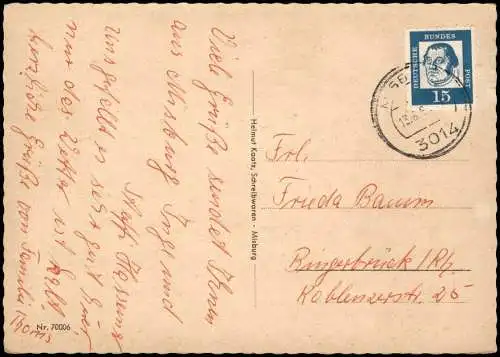 Viele Grüße sendet Ihnen
aus Misburg Inge und
Steffi Klassens
uns gefällt es sehr gut hier
nur das Wetter ist kalt.
herzliche Grüße von Familie Thoms
Helmut Kaatz, Schreibwaren - Misburg
Nr. 70006
DEUTSCHE BUNDES POST
15
3014
Frl.
Frieda Baum
Bingerbrück/Rh.
Koblenzerstr. 25